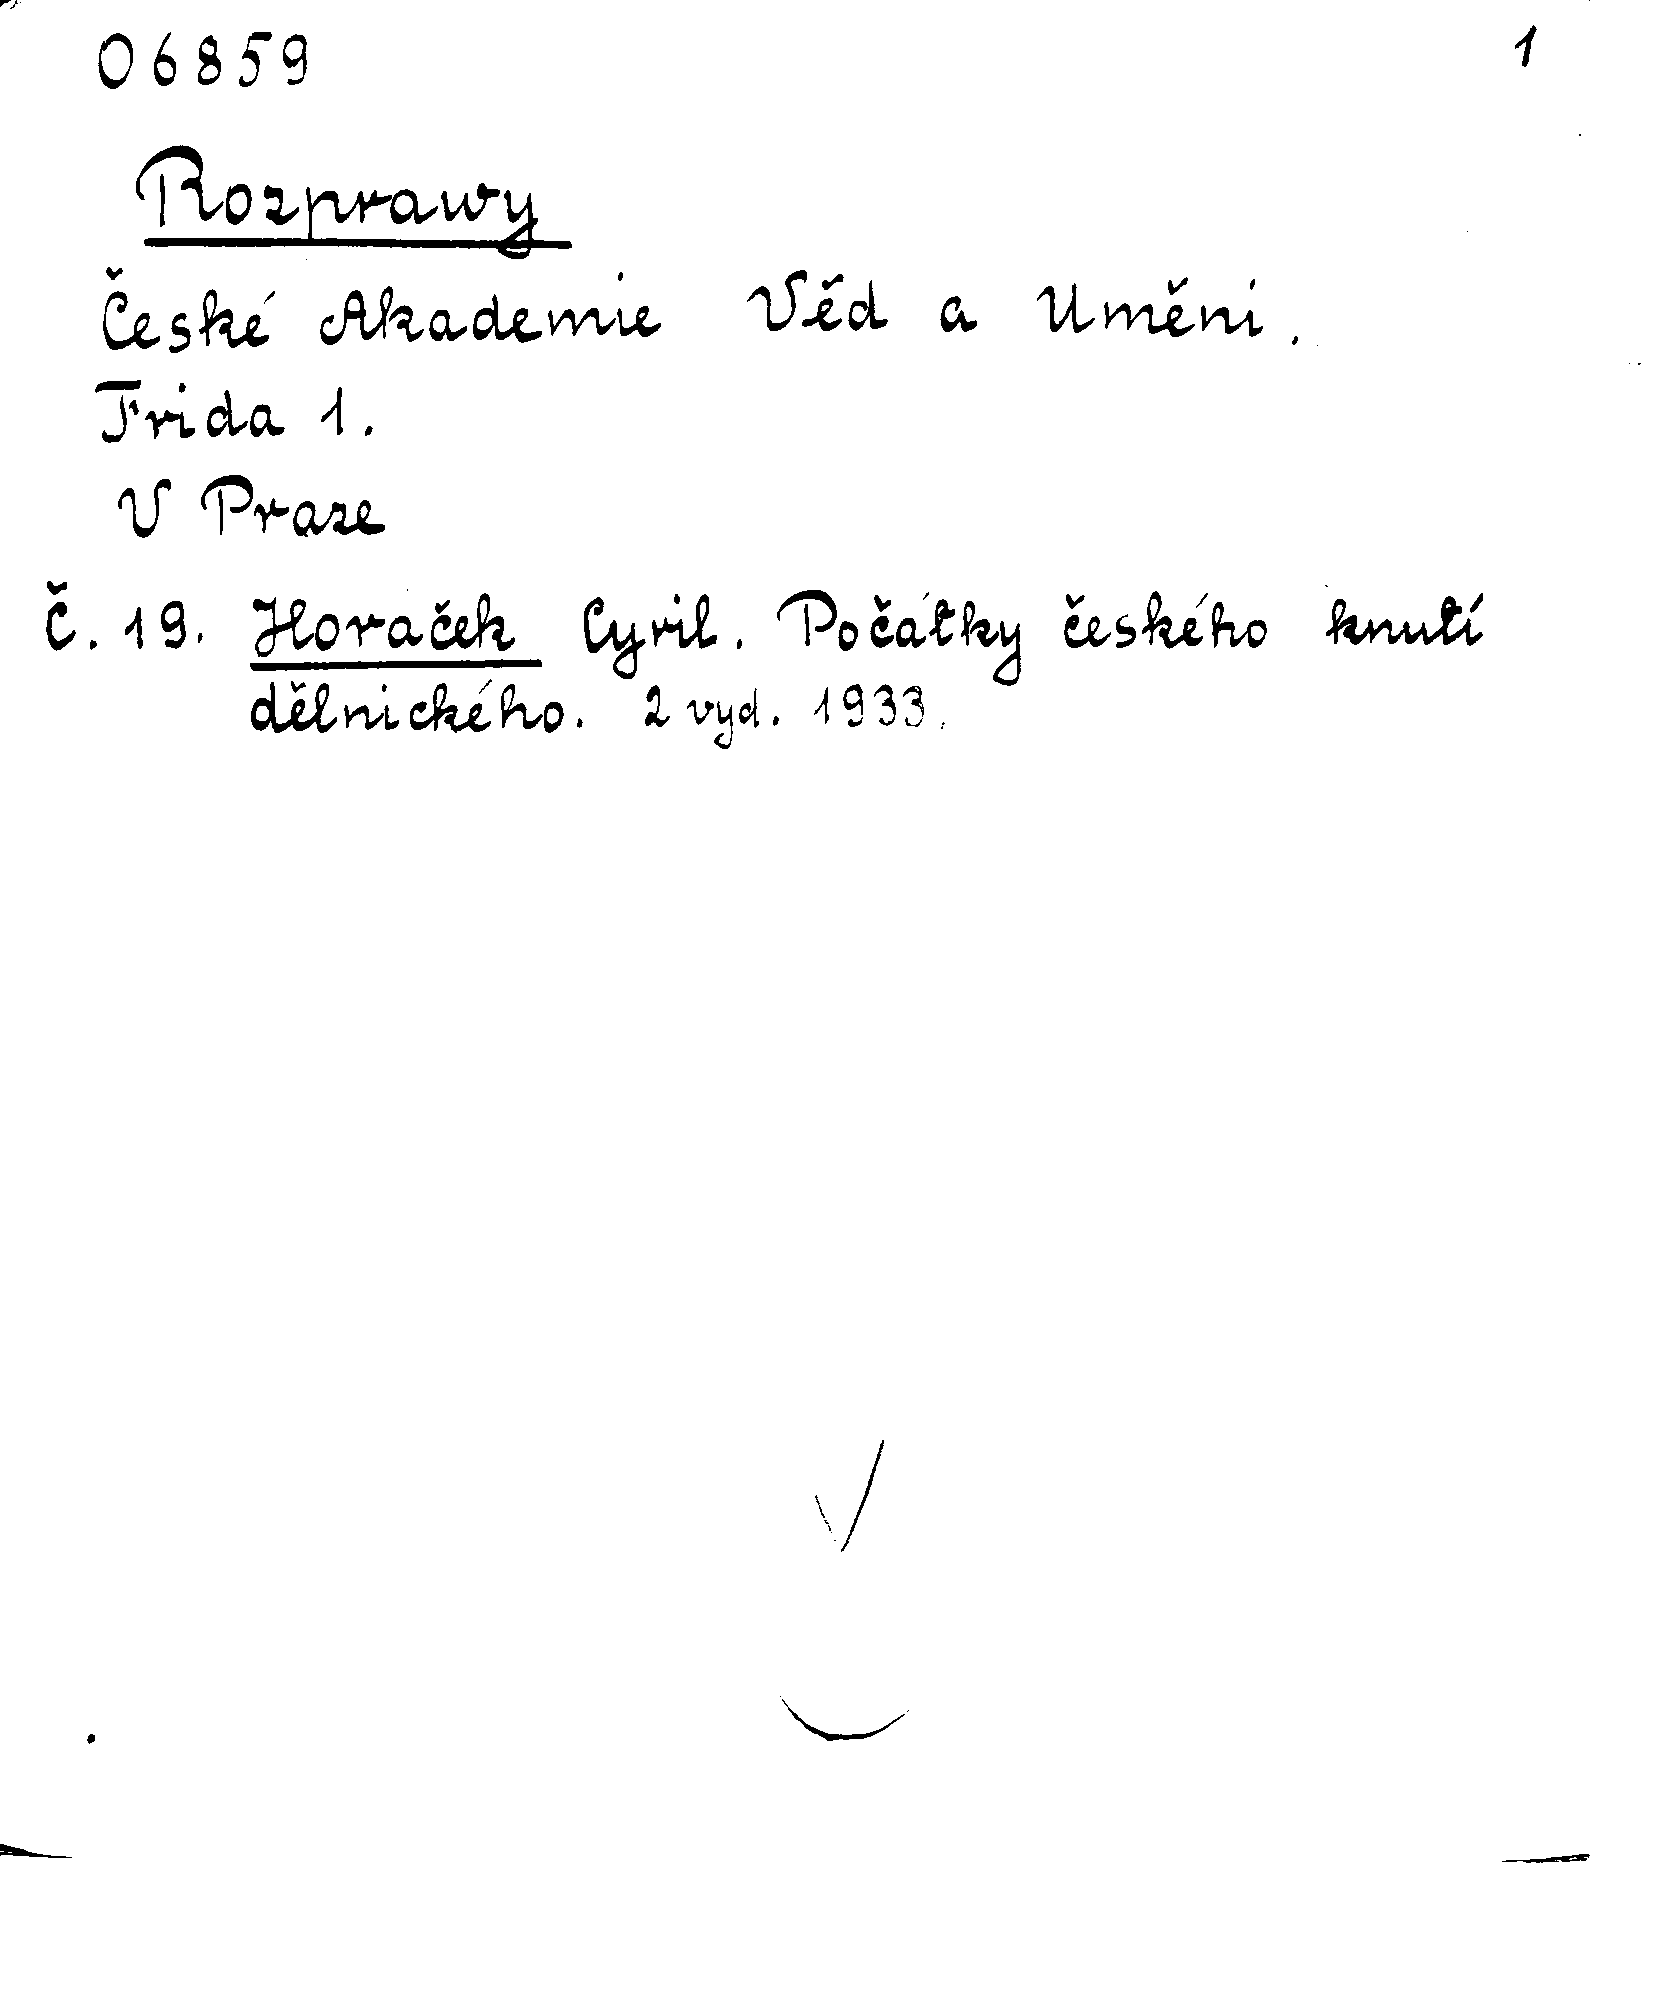 06859 1
Rozprawy
České Akademie Věd a Uměni.
Frida 1.
V Praze
Č. 19. Horaček Cyril. Počátky českého knutí
dělnického. 2 vyd. 1933.